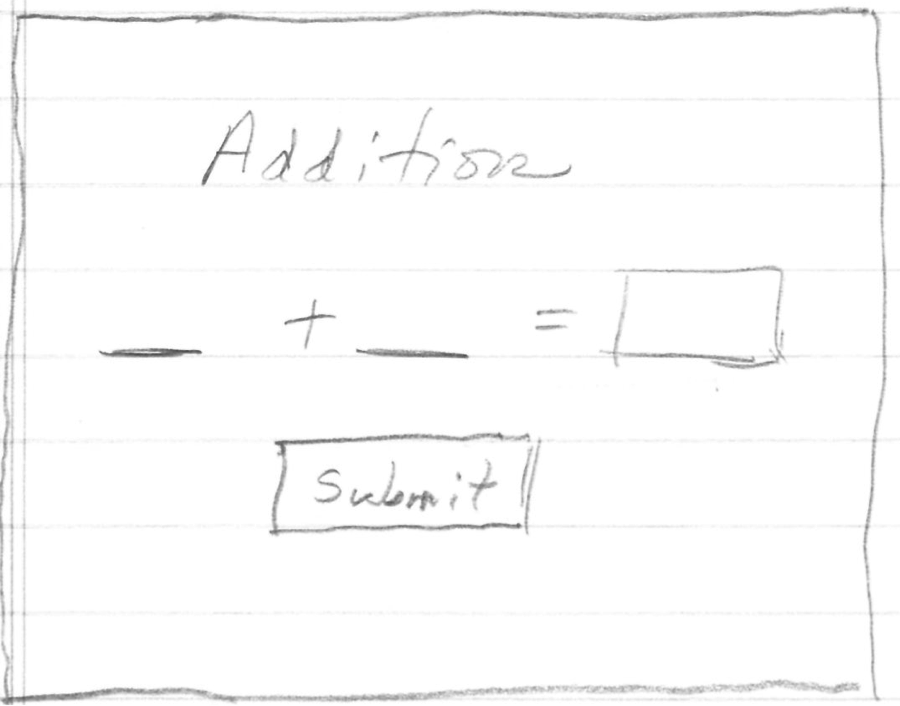 Addition
__ + __ =
Submit